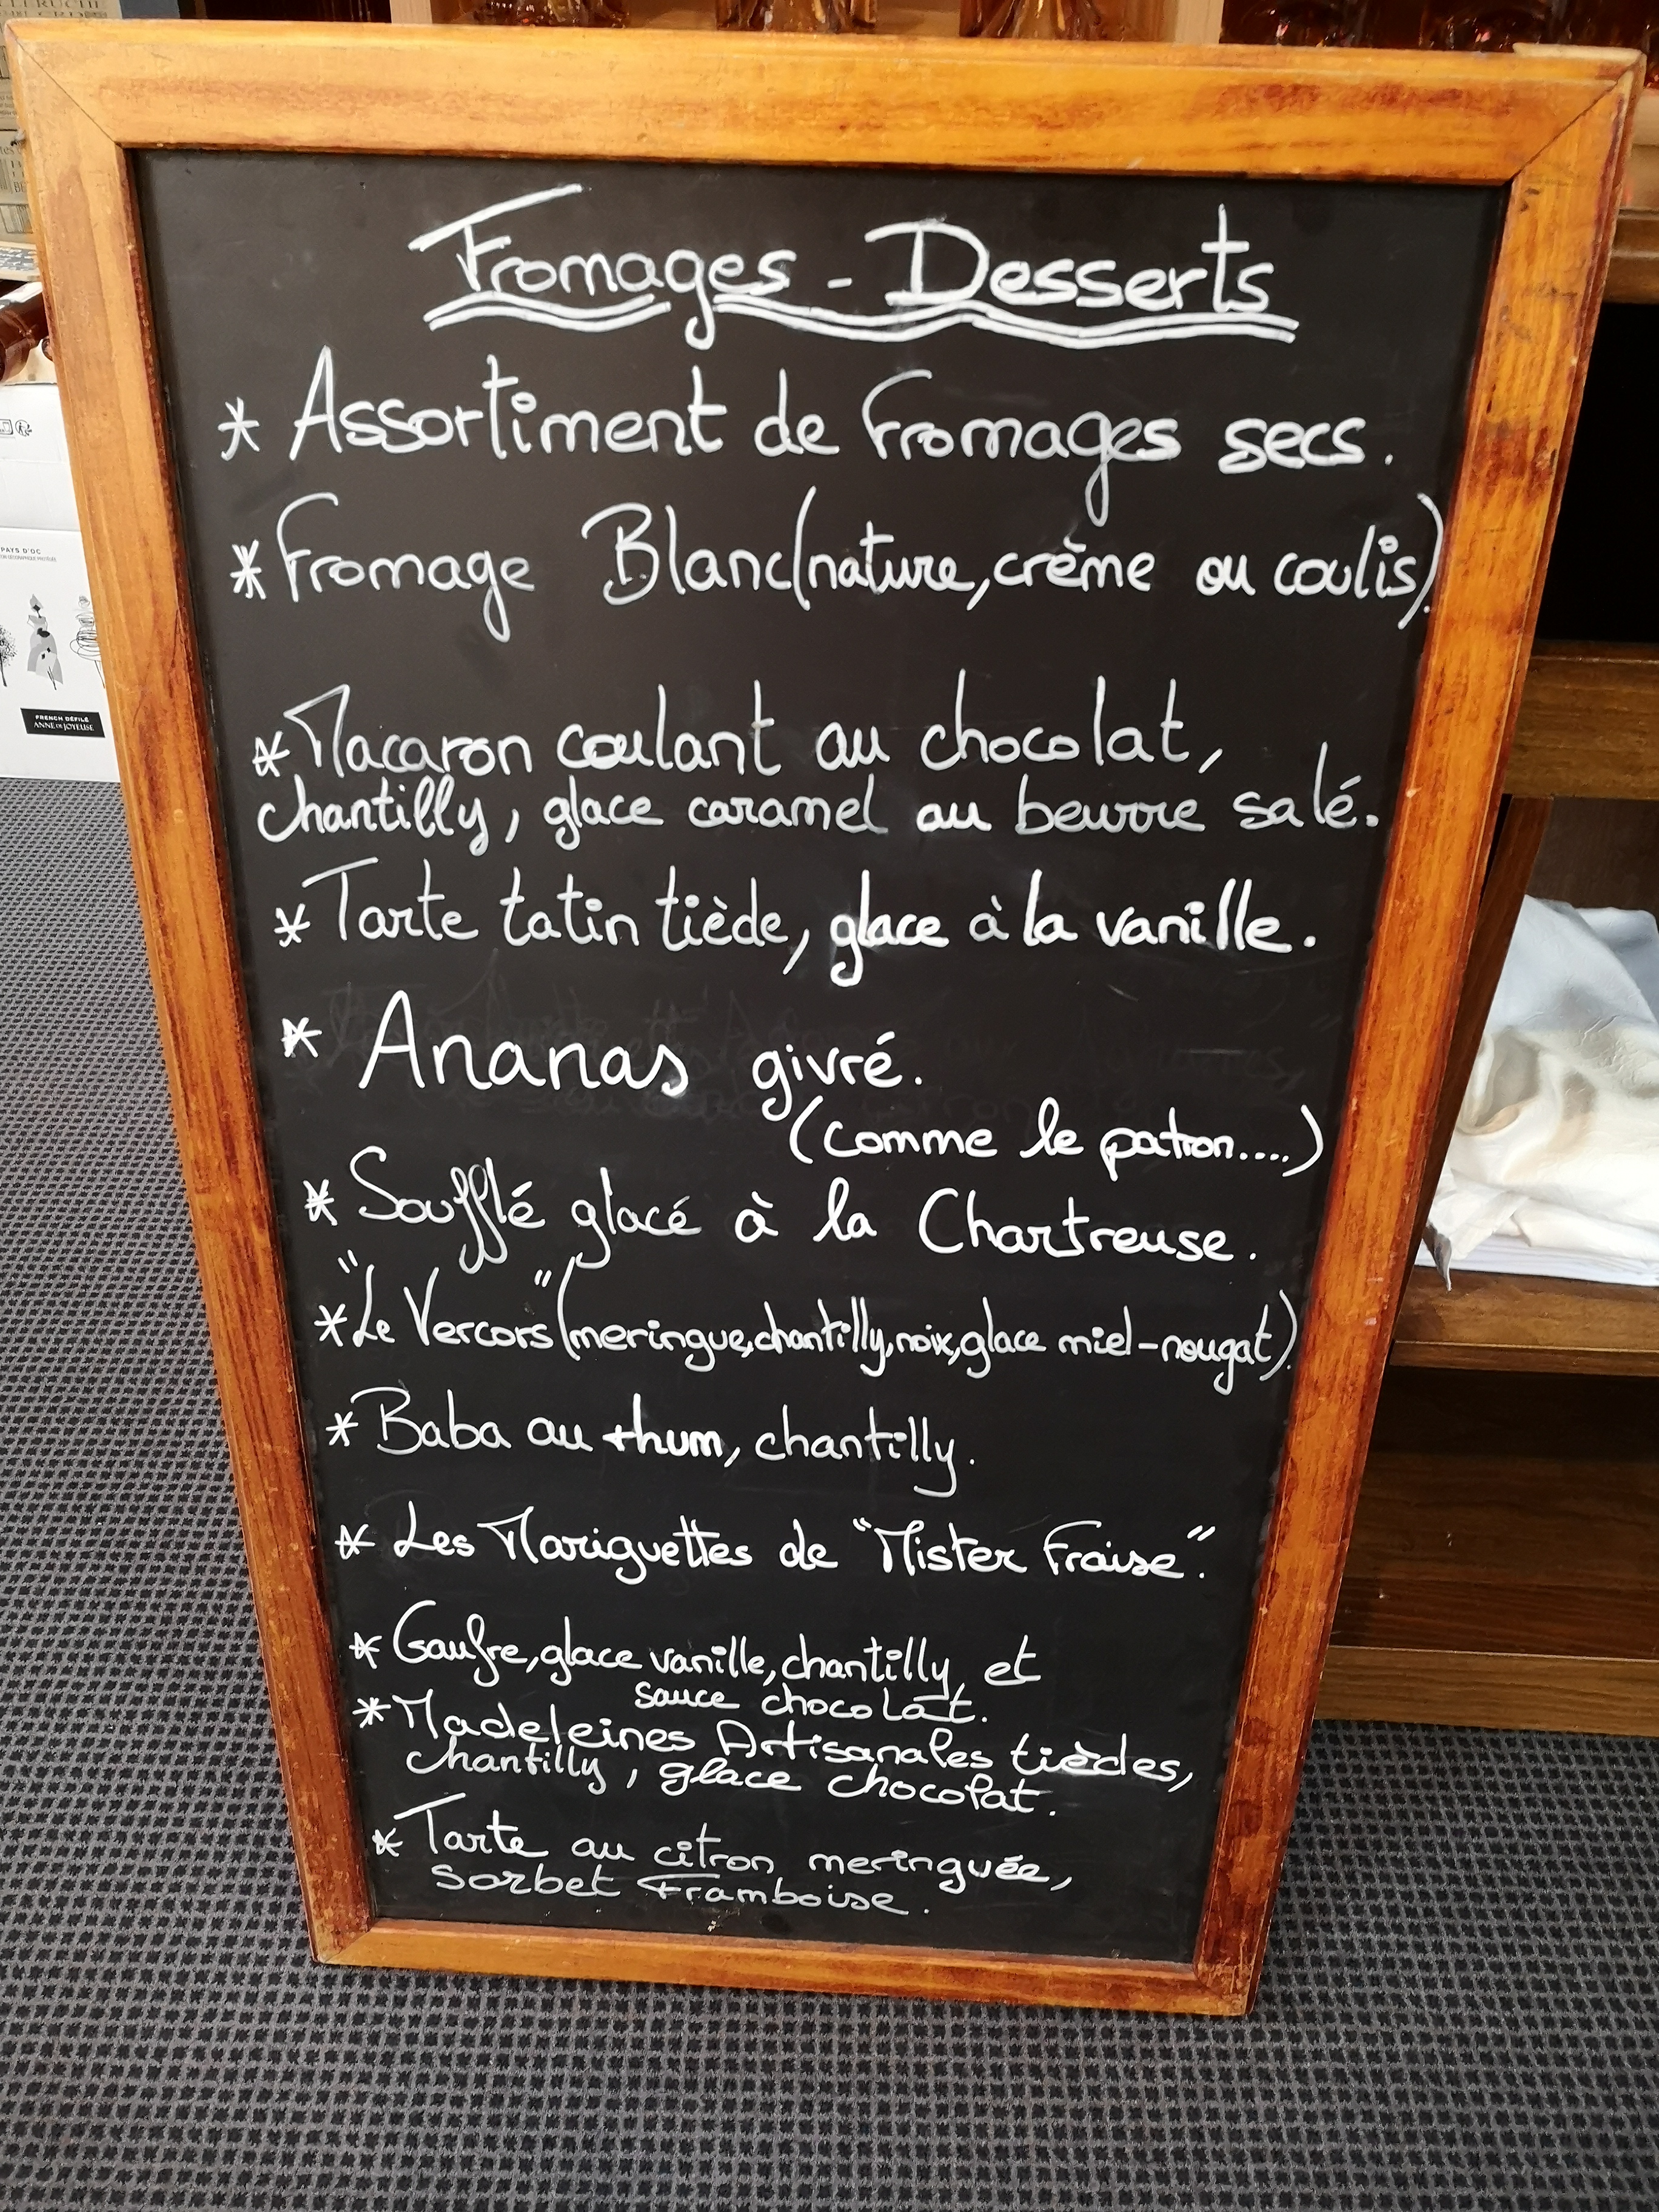 Fromages - Desserts
* Assortiment de fromages secs.
* Fromage Blanc (nature, crème ou coulis)
* Macaron coulant au chocolat,
chantilly, glace caramel au beurre salé.
* Tarte tatin tiède, glace à la vanille.
* Ananas givré.
(comme le patron....)
* Soufflé glacé à la Chartreuse.
* "Le Vercors" (meringue, chantilly, noix, glace miel-nougat).
* Baba au rhum, chantilly.
* Les Mariguettes de "Mister Fraise".
* Gaufre, glace vanille, chantilly et
sauce chocolat.
* Madeleines Artisanales tièdes,
chantilly, glace chocolat.
* Tarte au citron meringuée,
sorbet Framboise.
PAYS D'OC
FRENCH DÉFILÉ
ANNE DE JOYEUSE